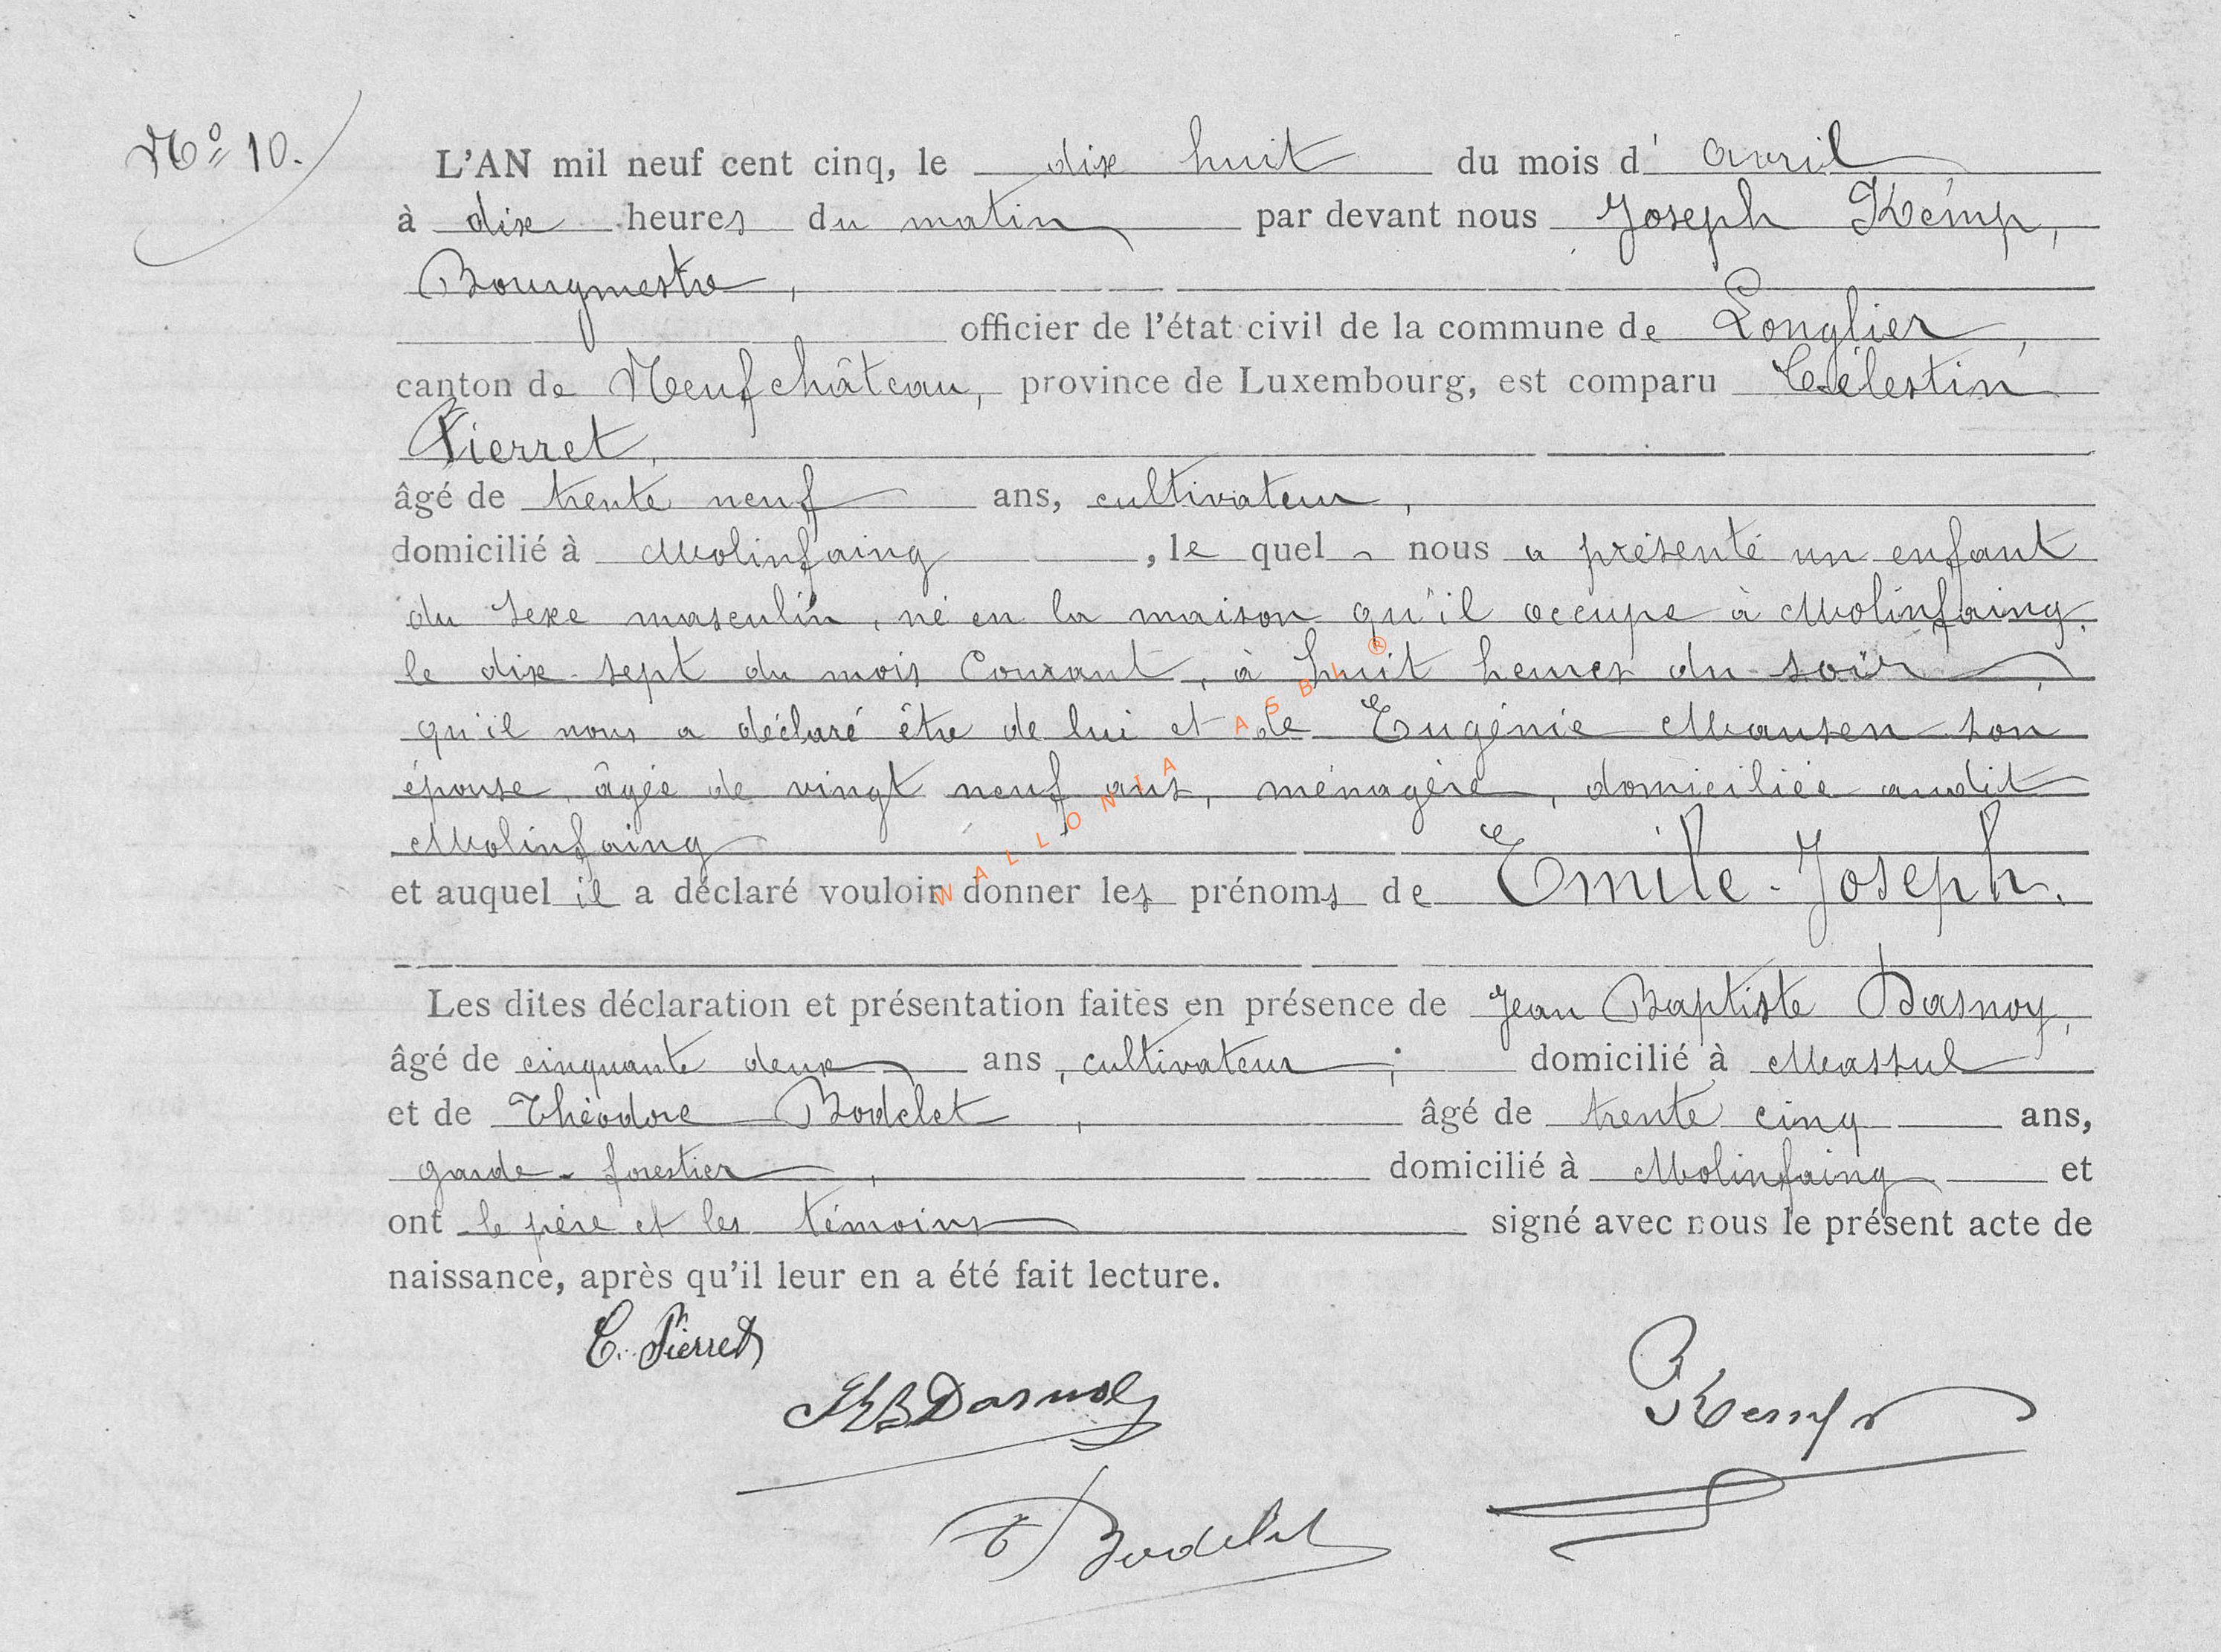 N° 10.
L'AN mil neuf cent cinq, le dix huit du mois d' Avril
à dix heures du matin par devant nous Joseph Kemp,
Bourgmestre,
officier de l'état civil de la commune de Longlier,
canton de Neufchâteau, province de Luxembourg, est comparu Célestin
Pierret,
âgé de trente neuf ans, cultivateur,
domicilié à Molinfaing, le quel nous a présenté un enfant
du sexe masculin, né en la maison qu'il occupe à Molinfaing,
le dix-sept du mois Courant, à huit heures du soir,
qu'il nous a déclaré être de lui et de Eugénie Mansen son
épouse, âgée de vingt neuf ans, ménagère, domiciliée audit
Molinfaing
et auquel il a déclaré vouloir donner les prénoms de Emile-Joseph.
Les dites déclaration et présentation faites en présence de Jean Baptiste Dasnoy,
âgé de cinquante deux ans, cultivateur, domicilié à Massul
et de Théodore Bodelet, âgé de trente cinq ans,
garde-forestier, domicilié à Molinfaing et
ont le père et les témoins signé avec nous le présent acte de
naissance, après qu'il leur en a été fait lecture.
C. Pierret
JB Dasnoy
Kemp
T Bodelet
WALLONIA ASBL ®